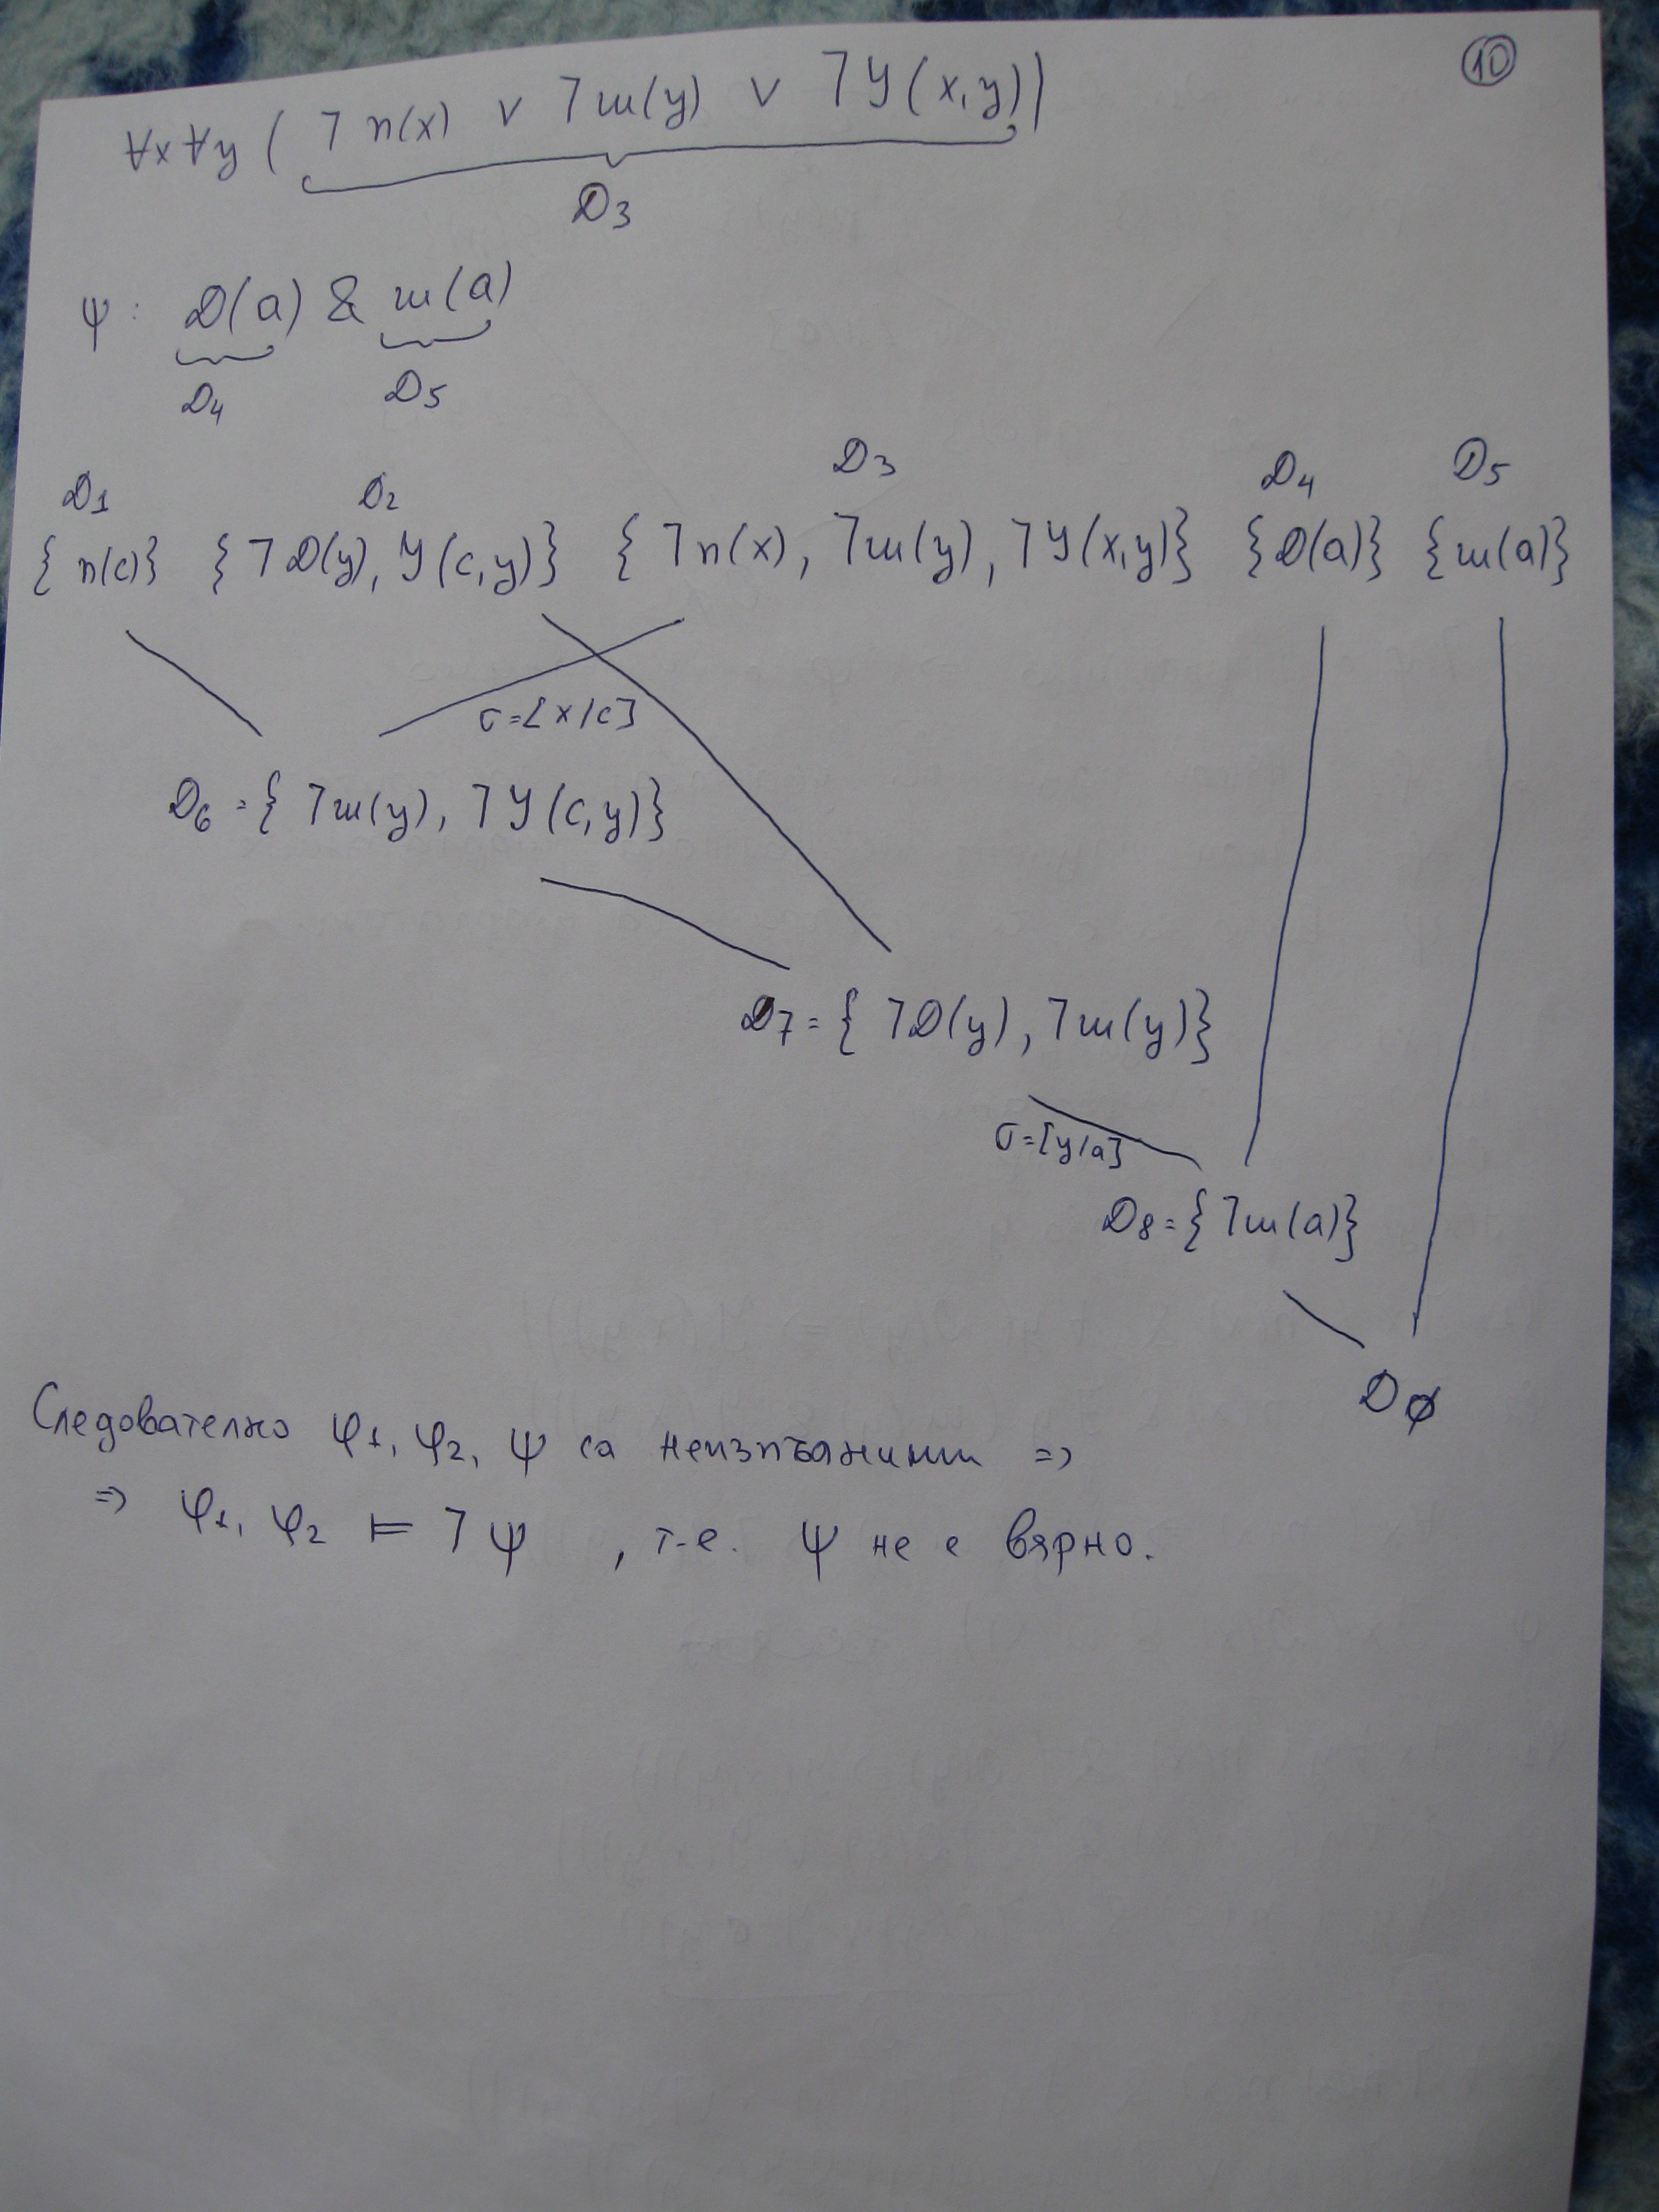 10
∀x∀y ( ⌉п(x) ∨ ⌉ш(y) ∨ ⌉У(x,y))
D3
ψ : D(a) & ш(a)
D4 D5
D1 D2 D3 D4 D5
{п(c)} {⌉D(y), У(c,y)} {⌉п(x), ⌉ш(y), ⌉У(x,y)} {D(a)} {ш(a)}
σ=[x/c]
D6 = {⌉ш(y), ⌉У(c,y)}
D7 = {⌉D(y), ⌉ш(y)}
σ=[y/a]
D8 = {⌉ш(a)}
D∅
Следователно φ1, φ2, ψ са неизпълними =>
=> φ1, φ2 ⊨ ⌉ψ , т.е. ψ не е вярно.